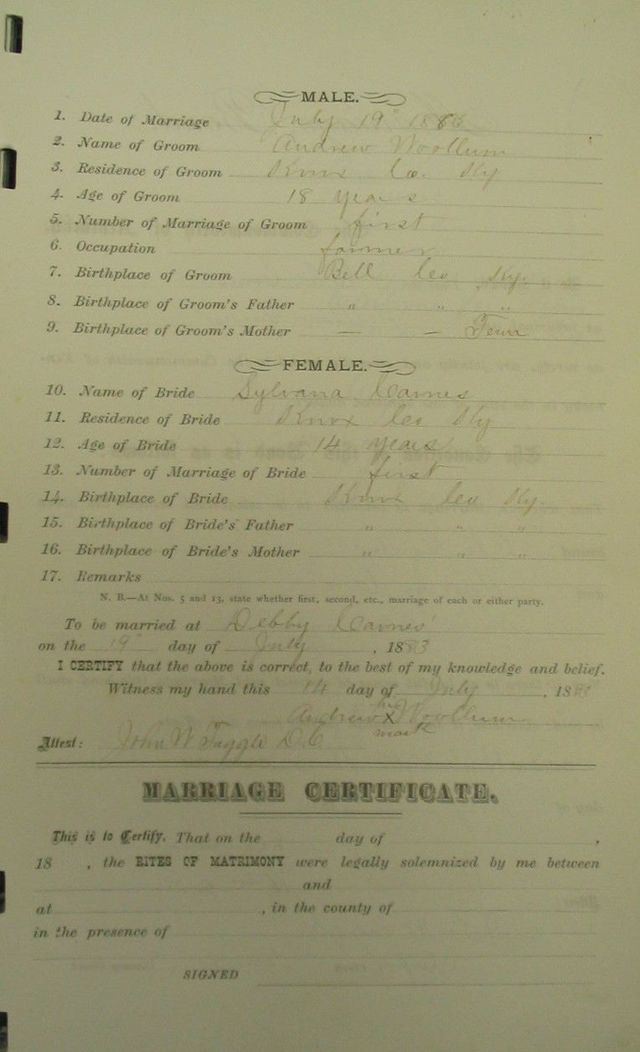 MALE.
1. Date of Marriage July 19" 1883
2. Name of Groom Andrew Woollum
3. Residence of Groom Knox Co. Ky
4. Age of Groom 18 years
5. Number of Marriage of Groom first
6. Occupation farmer
7. Birthplace of Groom Bell Co Ky.
8. Birthplace of Groom's Father " " "
9. Birthplace of Groom's Mother — — Tenn
FEMALE.
10. Name of Bride Sylvana Carnes
11. Residence of Bride Knox Co Ky
12. Age of Bride 14 years
13. Number of Marriage of Bride first
14. Birthplace of Bride Knox Co Ky.
15. Birthplace of Bride's Father " " "
16. Birthplace of Bride's Mother " " "
17. Remarks
N. B.—At Nos. 5 and 13, state whether first, second, etc., marriage of each or either party.
To be married at Debby Carnes'
on the 19" day of July, 1883
I CERTIFY that the above is correct, to the best of my knowledge and belief.
Witness my hand this 14 day of July, 188
his
Andrew X Woollum
mark
Attest: John W Tuggle D.C
MARRIAGE CERTIFICATE.
This is to Certify, That on the day of ,
18 , the RITES OF MATRIMONY were legally solemnized by me between
and
at , in the county of
in the presence of
SIGNED